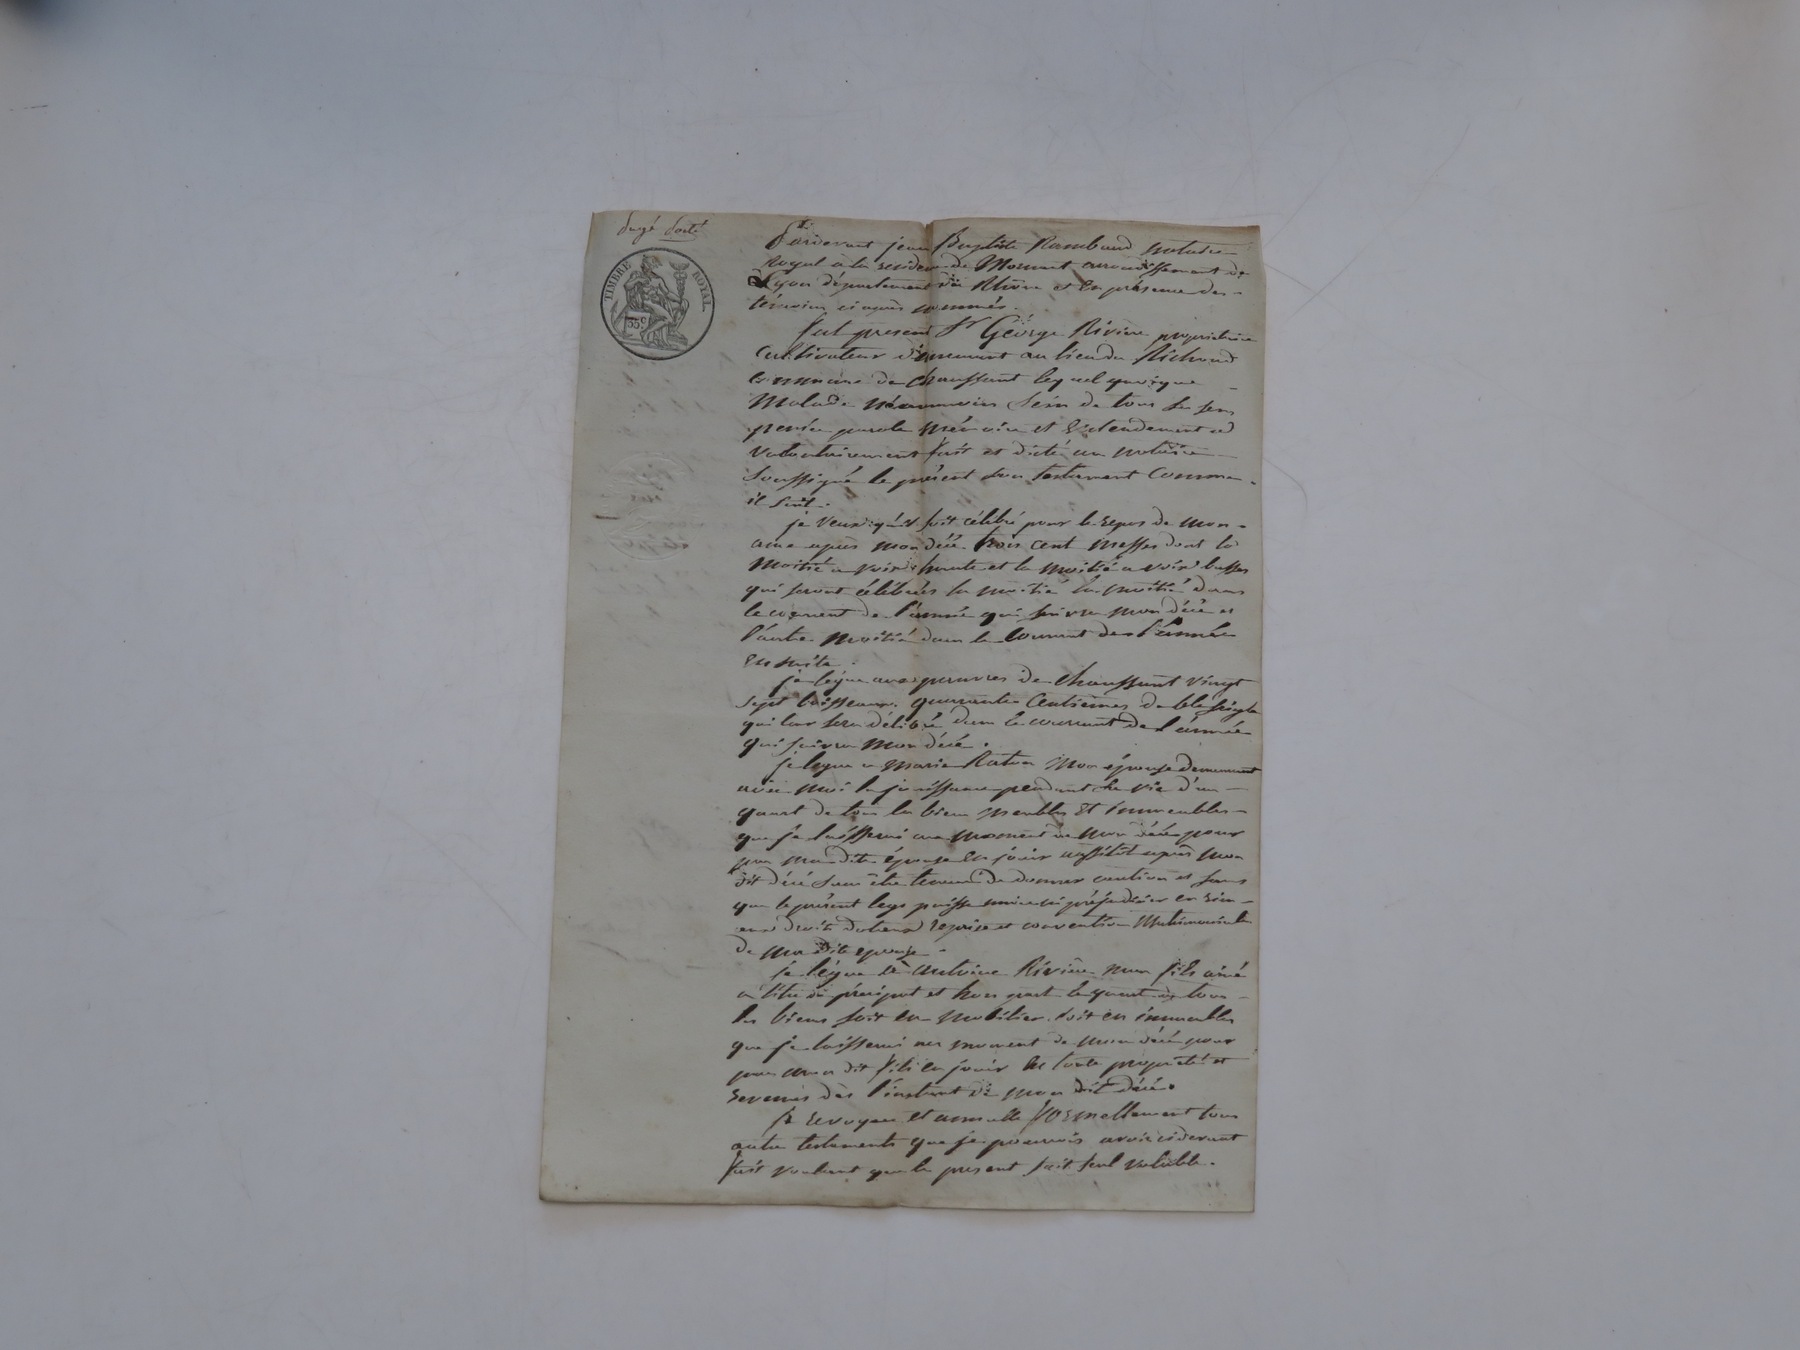 TIMBRE ROYAL
Pardevant jean Baptiste Rambaud notaire
Royal a la residence de Mornant arrondissement de
Lyon département du Rhône et en présence des
témoins ci après nommés.
fut present Sr George Rivière propriétaire
Cultivateur demeurant au lieu du Richoud
commune de chaussant lequel quoique
Malade néanmoins sein de tous ses sens
pensée parole mémoire et Entendement a
volontairement fait et dicté au notaire
soussigné le présent son testament Comme
il suit.
je veux qu'il soit célébré pour le repos de mon
ame apres mon décé trois cent messes dont la
moitié a voix haute et la moitié a voix basses
qui seront célébrées la moitié la moitié dans
le courrent de l'année qui suivra mon décé et
l'autre moitié dans le Courrant de l'année
En suite.
je lègue aux pauvres de Chaussant vingt
sept boisseaux quarante Centièmes de blé seigle
qui leur sera délivré dans le courrant de l'année
qui suivra mon décé.
je legue a marie Raton mon épouse demeurant
avec moi la jouissance pendant sa vie d'un
quart de tous les biens meubles Et immeubles
que je laisserai au moment de mon décé pour
par ma dite épouse en jouir aussitôt après mon
dit décé sans être tenue de donner caution et sans
que le présent legs puisse nuire ni préjudicier en rien
aux droits dotaux reprise et convention Matrimoniale
de ma dite epouse.
je lègue à antoine Rivière mon fils ainé
a titre de préciput et hors part le quart de tous
les biens soit en mobilier soit en immeubles
que je laisserai au moment de mon décé pour
par mon dit fils en jouir en toute propriété et
revenus dès l'instant de mon dit décé.
je revoque et annulle formellement tous
autre testaments que je pourrois avoir cidevant
fait voulant que le present soit seul valable.